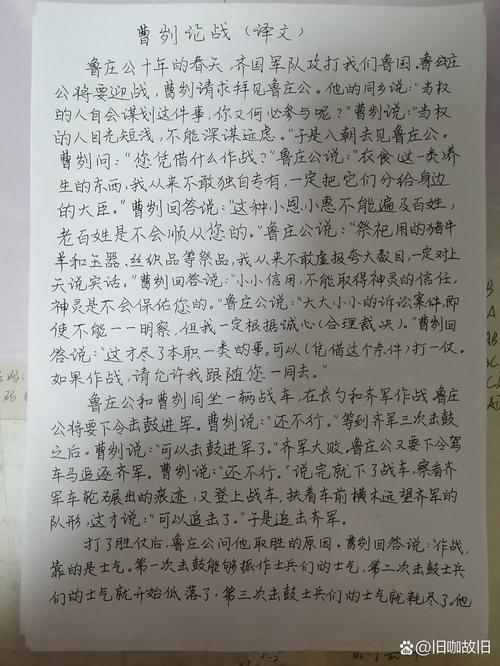 曹刿论战（译文）
鲁庄公十年的春天，齐国军队攻打我们鲁国。鲁庄
公将要迎战，曹刿请求拜见鲁庄公。他的同乡说：“当权
的人自会谋划这件事，你又何必参与呢？”曹刿说：“当权
的人目光短浅，不能深谋远虑。”于是入朝去见鲁庄公。
曹刿问：“您凭借什么作战？”鲁庄公说：“衣食（这一类）养
生的东西，我从来不敢独自专有，一定把它们分给身边
的大臣。”曹刿回答说：“这种小恩小惠不能遍及百姓，
老百姓是不会顺从您的。”鲁庄公说：“祭祀用的猪牛
羊和玉器、丝织品等祭品，我从来不敢虚报夸大数目，一定对上
天说实话。”曹刿回答说：“小小信用，不能取得神灵的信任，
神灵是不会保佑您的。”鲁庄公说：“大大小小的诉讼案件，即
使不能一一明察，但我一定根据诚心（合理裁决）。”曹刿回
答说：“这才尽了本职一类的事，可以（凭借这个条件）打一仗。
如果作战，请允许我跟随您一同去。”
鲁庄公和曹刿同坐一辆战车，在长勺和齐军作战。鲁庄
公将要下令击鼓进军。曹刿说：“还不行。”等到齐军三次击鼓
之后。曹刿说：“可以击鼓进军了。”齐军大败。鲁庄公又要下令驾
车马追逐齐军。曹刿说：“还不行。”说完就下了战车，察看齐
军车轮碾出的痕迹，又登上战车，扶着车前横木远望齐军的
队形，这才说：“可以追击了。”于是追击齐军。
打了胜仗后，鲁庄公问他取胜的原因。曹刿回答说：“作战，
靠的是士气。第一次击鼓能够振作士兵们的士气，第二次击鼓士兵
们的士气就开始低落了，第三次击鼓士兵们的士气就耗尽了。他
百家号/旧咖故旧